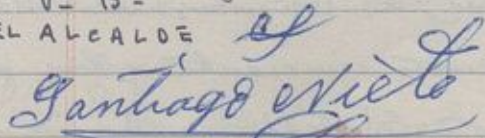 EL ALCALDE
Santiago Nieto